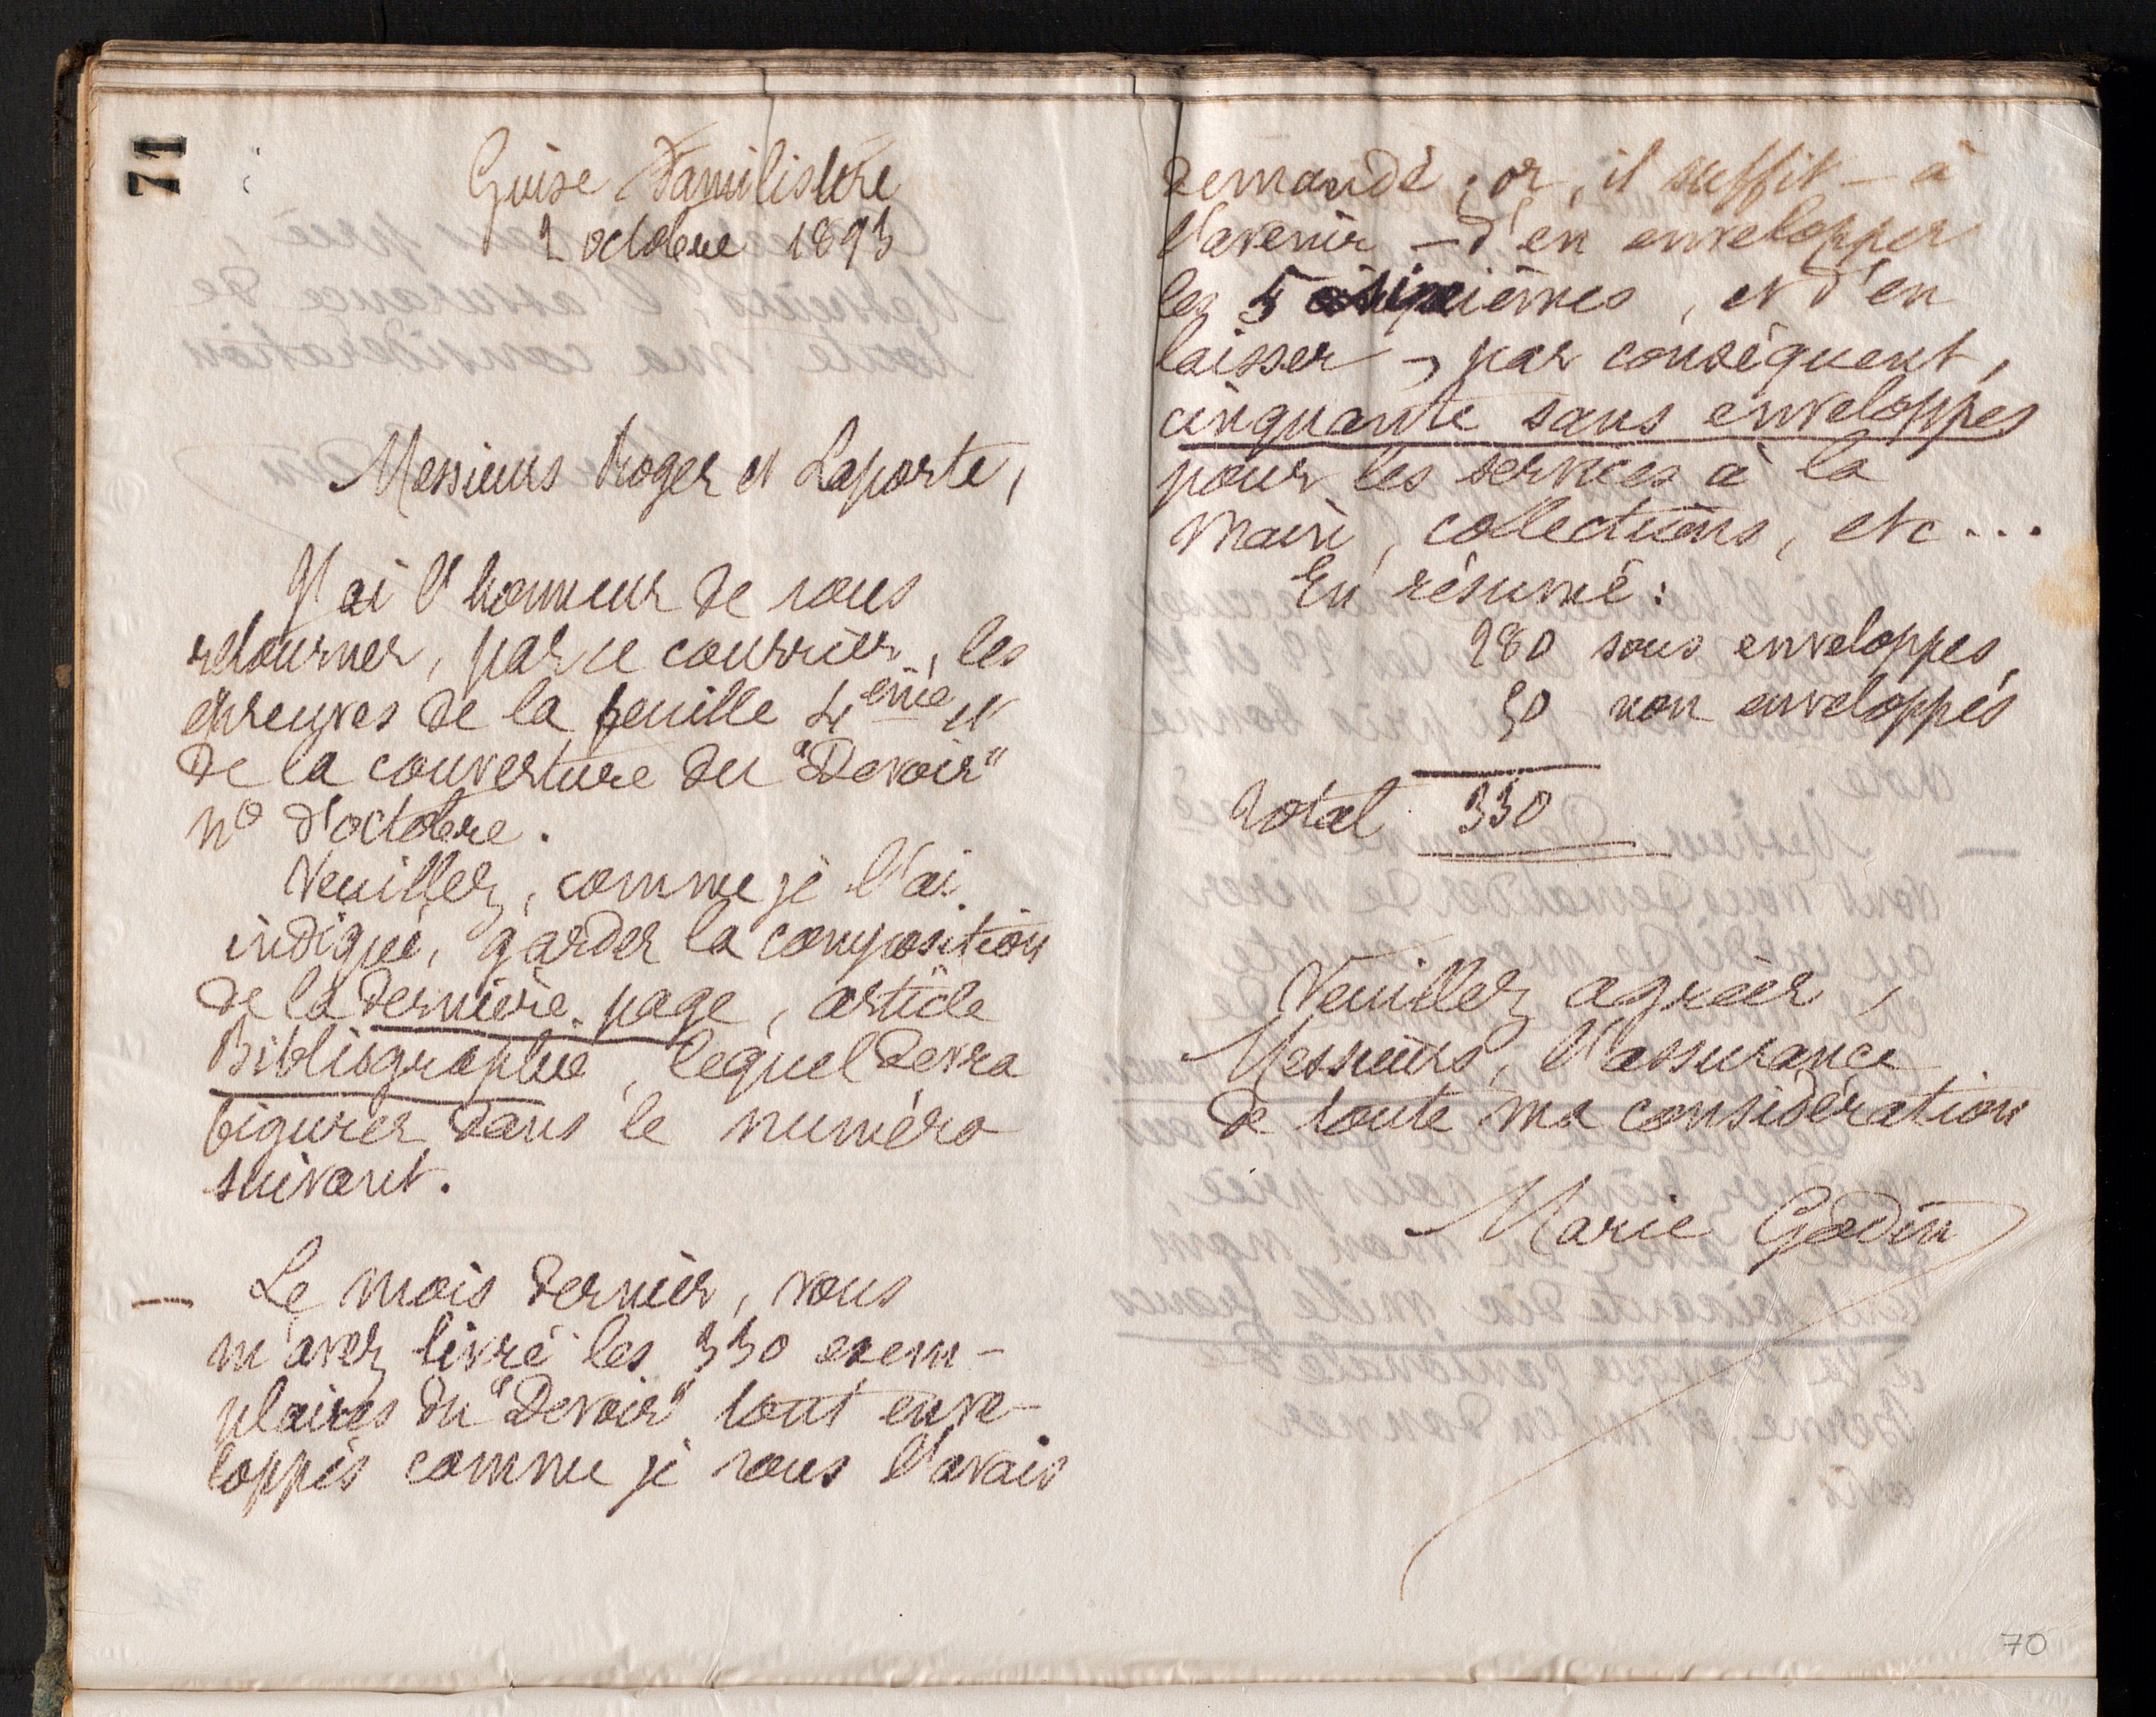 71
Guise Familistère
2 octobre 1893
Messieurs Roger et Laporte,
J'ai l'honneur de vous
retourner, par ce courrier, les
épreuves de la feuille 4ème et
de la couverture du "Devoir"
no d'octobre.
Veuillez, comme je l'ai
indiqué, garder la composition
de la dernière page, article
Bibliographie, lequel devra
figurer dans le numéro
suivant.
— Le mois dernier, vous
m'avez livré les 330 exem-
plaires du "Devoir" tout enve-
loppés comme je vous l'avais
demandé ; or, il suffit — à
l'avenir — d'en envelopper
les 5 sixièmes, et d'en
laisser, par conséquent,
cinquante sans enveloppes
pour les services à la
main, collections, etc...
En résumé :
280 sous enveloppes,
50 non enveloppés
Total 330
Veuillez agréer,
Messieurs, l'assurance
de toute ma considération
Marie Godin
70